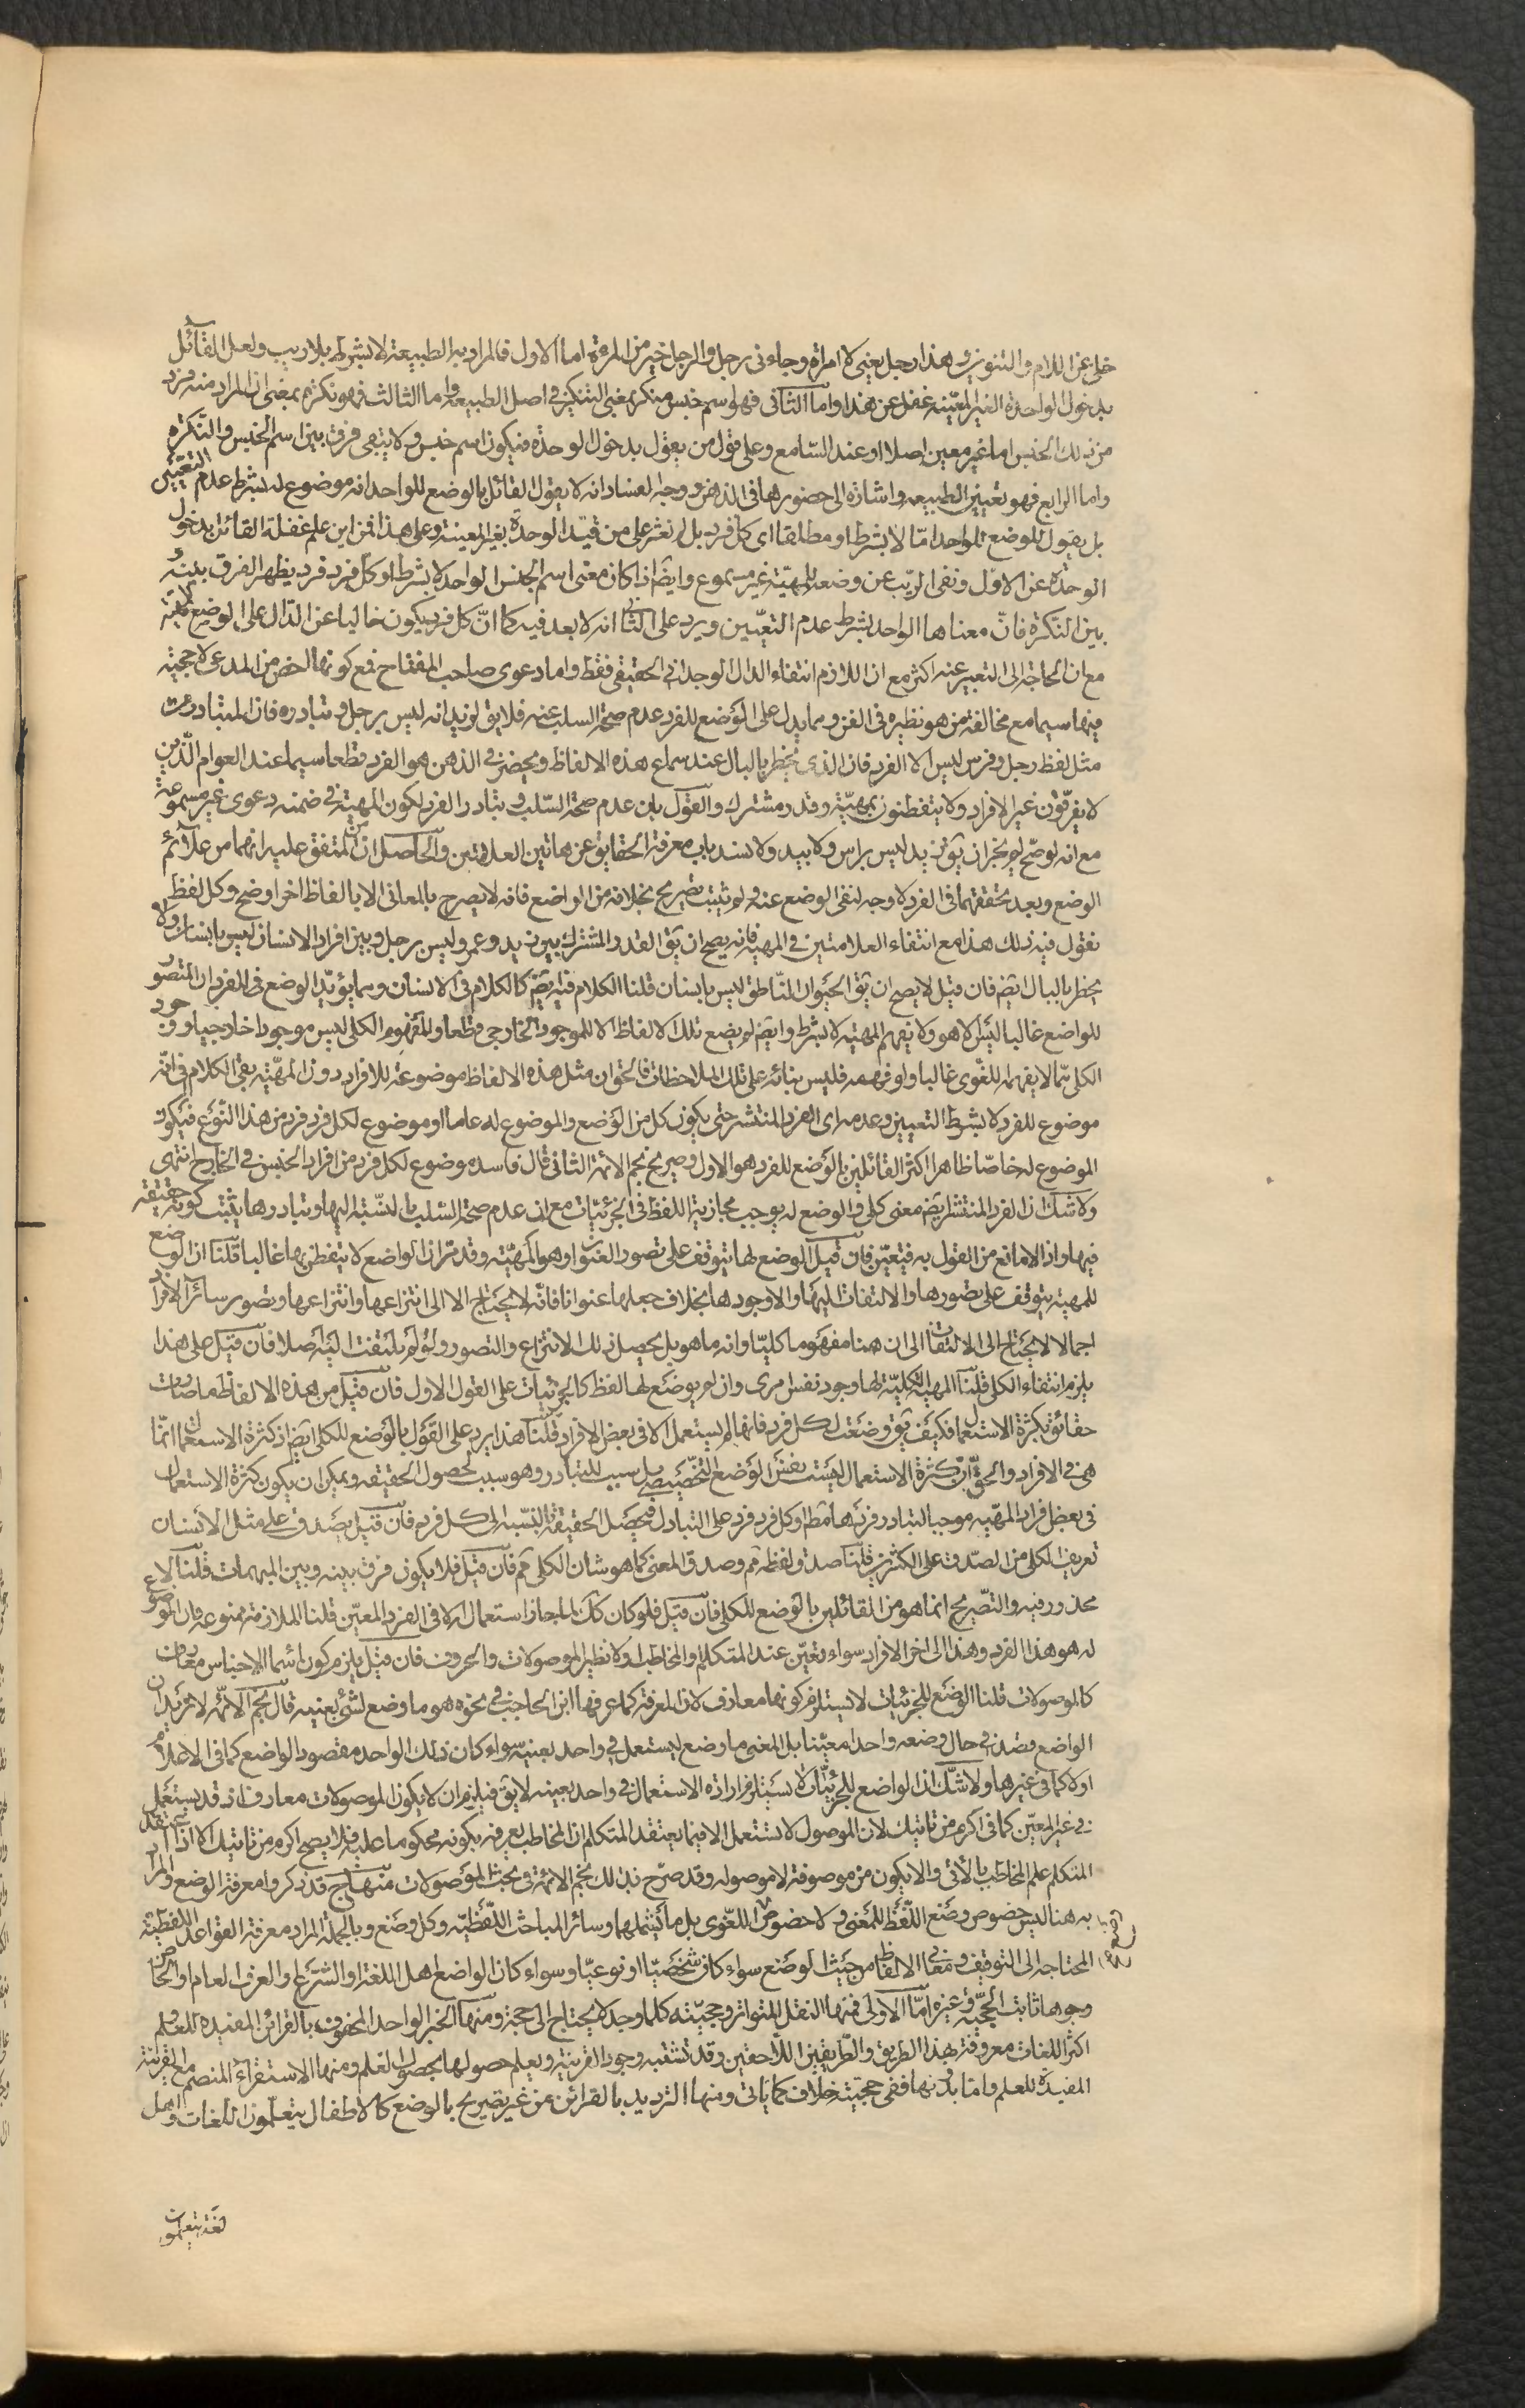 خلى عن اللام والتنوين وهذا رجل يعنى لا امراة وجاءنى رجل والرجل خير من المرءة اما الاول فالمراد به الطبيعة لا بشرط بلا ريب ولعل القائل
بدخول الواحدة الغير المعيّنه غفل عن هذا واما الثانى فهو اسم جنس منكر بمعنى التنكير فى اصل الطبيعه واما الثالث فهو نكرة بمعنى ان المراد منه فرد
من ذلك الجنس اما غير معين اصلا او عند السّامع وعلى قول من يقول بدخول الوحدة فيكون اسم جنس ولا يبقى فرق بين اسم الجنس والنّكرة
واما الرابع فهو تعيين الطبيعه واشارة الى حضورها فى الذهن ووجه الفساد انه لا يقول القائل بالوضع للواحد انه موضوع له بشرط عدم التعيّن
بل يقول للوضع للواحد امّا لا بشرط او مطلقا اى كل فرد بل لم نعثر على من قيّد الوحدة بغير المعينة وعلى هذا فمن اين علم غفلة القائل بدخول
الوحدة عن الاوّل ونفى الرّيب عن وضعه للمهيّة غير مسموع وايضا اذا كان معنى اسم الجنس الواحد لا بشرط او كل فرد فرد يظهر الفرق بينه
بين النّكرة فانّ معناها الواحد بشرط عدم التعيّين ويرد على الثانى انه لا بعد فيه كما انّ كل فرد يكون خاليا عن الدّال على الوضع للمهيّة
مع ان الحاجة الى التعبير عنه اكثر مع ان اللازم انتفاء الدال الوجدانى الحقيقى فقط واما دعوى صاحب المفتاح فمع كونها اخص من المدعى لا حجية
فيها سيما مع مخالفة من هو نظيره فى الفن ومما يدل على الوضع للفرد عدم صحة السلب عنه فلا يق لزيد انه ليس برجل وتبادره فان المتبادر من
مثل لفظ رجل وفرس ليس الا الفرد فان الذى يخطر بالبال عند سماع هذه الالفاظ ويحضر فى الذهن هو الفرد قطعا سيما عند العوام الّذين
لا يعرفون غير الافراد ولا يتفطنون بمهيّة وقدر مشترك والقول بان عدم صحة السّلب وتبادر الفرد لكون المهيّة فى ضمنه دعوى غير مسموعة
مع انه لو صحّ لم يخبر ان يق زيد ليس براس ولا بيد ولانسد باب معرفة الحقايق عن هاتين العلامتين والحاصل ان المتفق عليه انهما من علائم
الوضع وبعد تحققهما فى الفرد لا وجه لنفى الوضع عنه ولو ثبت تصريح بخلافه من الواضع فانه لا يصرح بالمعانى الا بالفاظ اخر اوضح وكل لفظ
نقول فيه ذلك هذا مع انتفاء العلامتين فى المهيّة فانه يصح ان يق القدر المشترك بين زيد وعمرو ليس برجل وبين افراد الانسان ليس بانسان ولا
يخطر بالبال ايضا فان قيل لا يصح ان يق الحيوان النّاطق ليس بانسان قلنا الكلام فيه ايضا كالكلام فى الانسان ومما يؤيّد الوضع فى للفرد ان المتصور
للواضع غالبا ليس الا هو ولا يفهم المهيّة لا بشرط وايضا لم يضع تلك الالفاظ الا للموجود الخارجى قطعا والمفهوم الكلى ليس موجودا خارجيا ووجود
الكلى مما لا يفهمه اللغوى غالبا ولو فهمه فليس بنائه على تلك الملاحظات فالحق ان مثل هذه الالفاظ موضوعة للافراد دون المهيّة بقى الكلام فى انّه
موضوع للفرد لا بشرط التعيين وعدمه اى الفرد المنتشر حتى يكون كل من الوضع والموضوع له عاما او موضوع لكل فرد فرد من هذا النّوع فيكون
الموضوع له خاصّا ظاهر اكثر القائلين بالوضع للفرد هو الاول وصريح نجم الائمة الثانى قال فاسد موضوع لكل فرد من افراد الجنس فى الخارج انتهى
ولا شك ان الفرد المنتشر ايضا معنى كلى والوضع له يوجب مجازية اللفظ فى الجزئيّات مع ان عدم صحة السّلب بالنّسبة اليها وتبادرها يثبت كونه حقيقة
فيها واذ لا مانع من القول به فيتعيّن فان قيل الوضع لها يتوقف على تصور العنوان وهو المهيّة وقد مرّ ان الواضع لا يتفطن بها غالبا قلنا ان الوضع
للمهيّة يتوقف على تصورها والالتفات اليها والا وجودها بخلاف جعلها عنوانا فانّه لا يحتاج الا الى انتزاعها وانتزاعها وتصور سائر الافراد
اجمالا لا يحتاج الى الالتفات الى ان هنا مفهوما كليّا وانه ما هو بل يحصل ذلك الانتزاع والتصور ولو لم يلتفت اليه اصلا فان قيل على هذا
يلزم انتفاء الكلى قلنا المهيّة الكليّة لها وجود نفس امرى وان لم يوضع لها لفظ كالجزئيات على القول الاول فان قيل من هذه الالفاظ ما صارت
حقائق بكثرة الاستعمال فكيف يق وضعت لكل فرد فانها لم يستعمل الا فى بعض الافراد قلنا هذا يرد على القول بالوضع للكلى ايضا اذ كثرة الاستعمال انّما
هى فى الافراد والحق ان كثرة الاستعمال ليست نفس الوضع التخصيصى بل سبب للتبادر وهو سبب لحصول الحقيقة ويمكن ان يكون كثرة الاستعمال
فى بعض افراد المهيّة موجبا لتبادر فردها مط او كل فرد فرد على التبادل فيحصل الحقيقة بالنّسبة الى كل فرد فان قيل يصدق على مثل الانسان
تعريف الكلى من الصّدق على الكثيرين قلنا صدق لفظه مم وصدق المعنى كما هو شان الكلى مم فان قيل فلا يكون فرق بينه وبين المبهمات قلنا لا
محذور فيه والتّصريح انما هو من القائلين بالوضع للكلى فان قيل فلو كان كك لما جاز استعماله الا فى الفرد المعيّن قلنا الملازمة ممنوعة فان الموضوع
له هو هذا الفرد وهذا الى اخر الافراد سواء تعيّن عند المتكلم والمخاطب او لا نظير الموصولات والحروف فان قيل يلزم كون اسماء الاجناس معارف
كالموصولات قلنا الوضع للجزئيات لا يستلزم كونها معارف لان المعرفة كما عرفها ابن الحاجب فى نحوه هو ما وضع لشئ بعينه قال نجم الائمّة لا نريد ان
الواضع قصد فى حال وضعه واحدا معيّنا بل المعنى ما وضع ليستعمل فى واحد بعينه سواء كان ذلك الواحد مقصود الواضع كما فى الاعلام
او لا كما فى غيرها ولا شك ان الواضع للجزئيّات لا يستلزم ارادة الاستعمال فى واحد بعينه لا يق فيلزم ان لا يكون الموصولات معارف اذ قد يستعمل
فى غير المعيّن كما فى اكرم من تاتيك لان الموصول لا يستعمل الا فيما يعتقد المتكلم ان المخاطب يعرفه بكونه محكوما عليه فلا يصح اكرم من تاتيك الا اذا اعتقد
المتكلم علم المخاطب بالاتى والا يكون من موصوفة لا موصوله وقد صرّح بذلك نجم الائمّة فى بحث الموصولات منهاج قد ذكروا لمعرفة الوضع والمراد
به هنا ليس خصوص وضع اللّفظ للمعنى ولا خصوص اللغوى بل ما يشملهما وسائر المباحث اللّفظيّه وكل وضع وبالجملة المراد معرفة القواعد اللفظية
المحتاجة الى التوقيف ومعانى الالفاظ من حيث الوضع سواء كان شخصيّا او نوعيّا وسواء كان الواضع اهل اللغة او الشّرع والعرف العام والخاص
وجوها ثابت الحجيّة وغيره امّا الاولى فمنها النقل المتواتر وحجيّته كلما وجد لا يحتاج الى حجة ومنها الخبر الواحد المحفوف بالقرائن المفيدة للعلم
اكثر اللغات معروفة بهذا الطريق والطّريقين اللّاحقين وقد تشتبه وجود القرينة ويعلم حصولها بحصول العلم ومنها الاستقراء المنضم مع القرينة
المفيدة للعلم واما بدونها ففى حجيّته خلاف كما ياتى ومنها الترديد بالقرائن من غير تصريح بالوضع كالاطفال يتعلّمون اللغات واهل
لغة يتعلمون